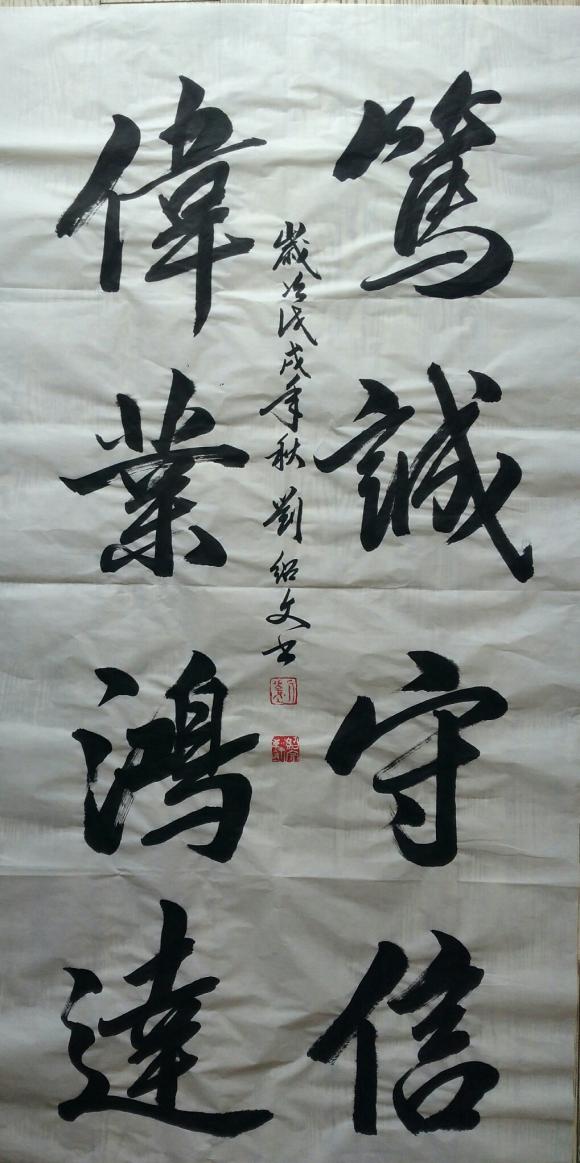 篤誠守信
偉業鴻達
歲次戊戌年秋劉紹文书